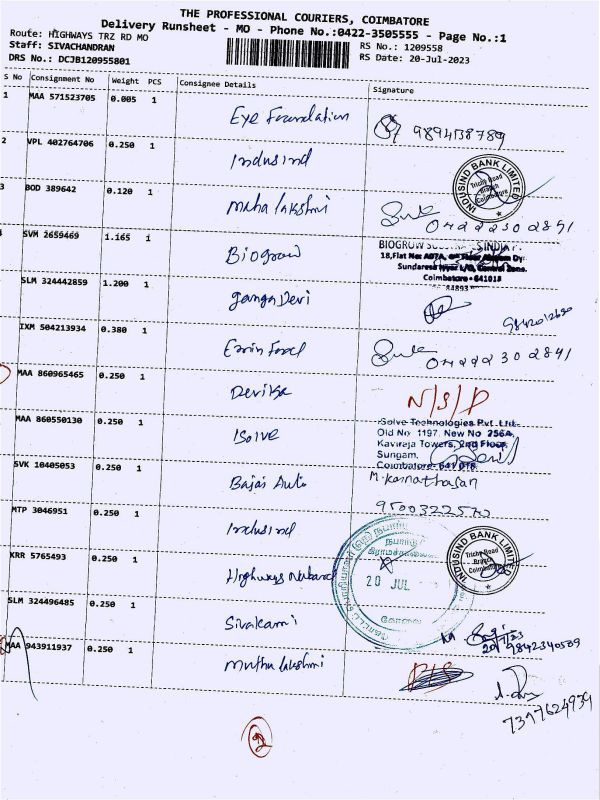 THE PROFESSIONAL COURIERS, COIMBATORE
Delivery Runsheet - MO - Phone No.:0422-3505555 - Page No.:1
Route: HIGHWAYS TRZ RD MO
RS No.: 1209558
Staff: SIVACHANDRAN
RS Date: 20-Jul-2023
DRS No.: DCJB120955801
S No Consignment No Weight PCS Consignee Details Signature
1 MAA 571523705 0.005 1 Eye Foundation
2 VPL 402764706 0.250 1 Indusind
INDUSIND BANK LIMITED
Trichy Road
Branch
Coimbatore
3 BOD 389642 0.120 1 Maha lakshmi 0422230 2891
SVM 2659469 1.165 1 Biogrow
BIOGROW
Coimbatore - 641018
SLM 324442859 1.200 1 Ganga Devi
IXM 504213934 0.380 1 04222302891
MAA 860965465 0.250 1 Devika N/S/P
MAA 860550130 0.250 1 Isolve
Solve Technologies Pvt. Ltd.
Old No 1197, New No 256A,
Kaviraja Towers, 2nd Floor,
Sungam,
SVK 10405053 0.250 1 Bajaj Auto
MTP 3046951 0.250 1 Indusind
INDUSIND BANK LIMITED
Trichy Road
Branch
Coimbatore
KRR 5765493 0.250 1 Highways
20 JUL
கோவை
SLM 324496485 0.250 1 Sivakami
20/7/23
9842340589
MAA 943911937 0.250 1 Muthu lakshmi
7397624939
2